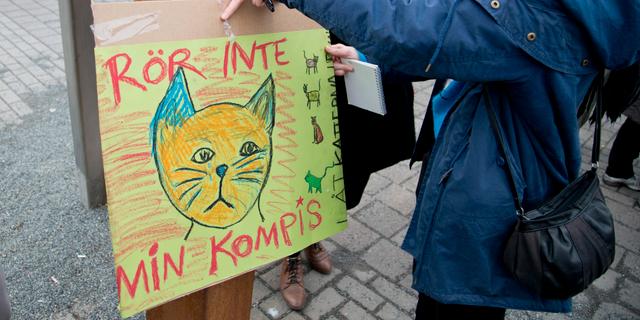 RÖR INTE
MIN KOMPIS